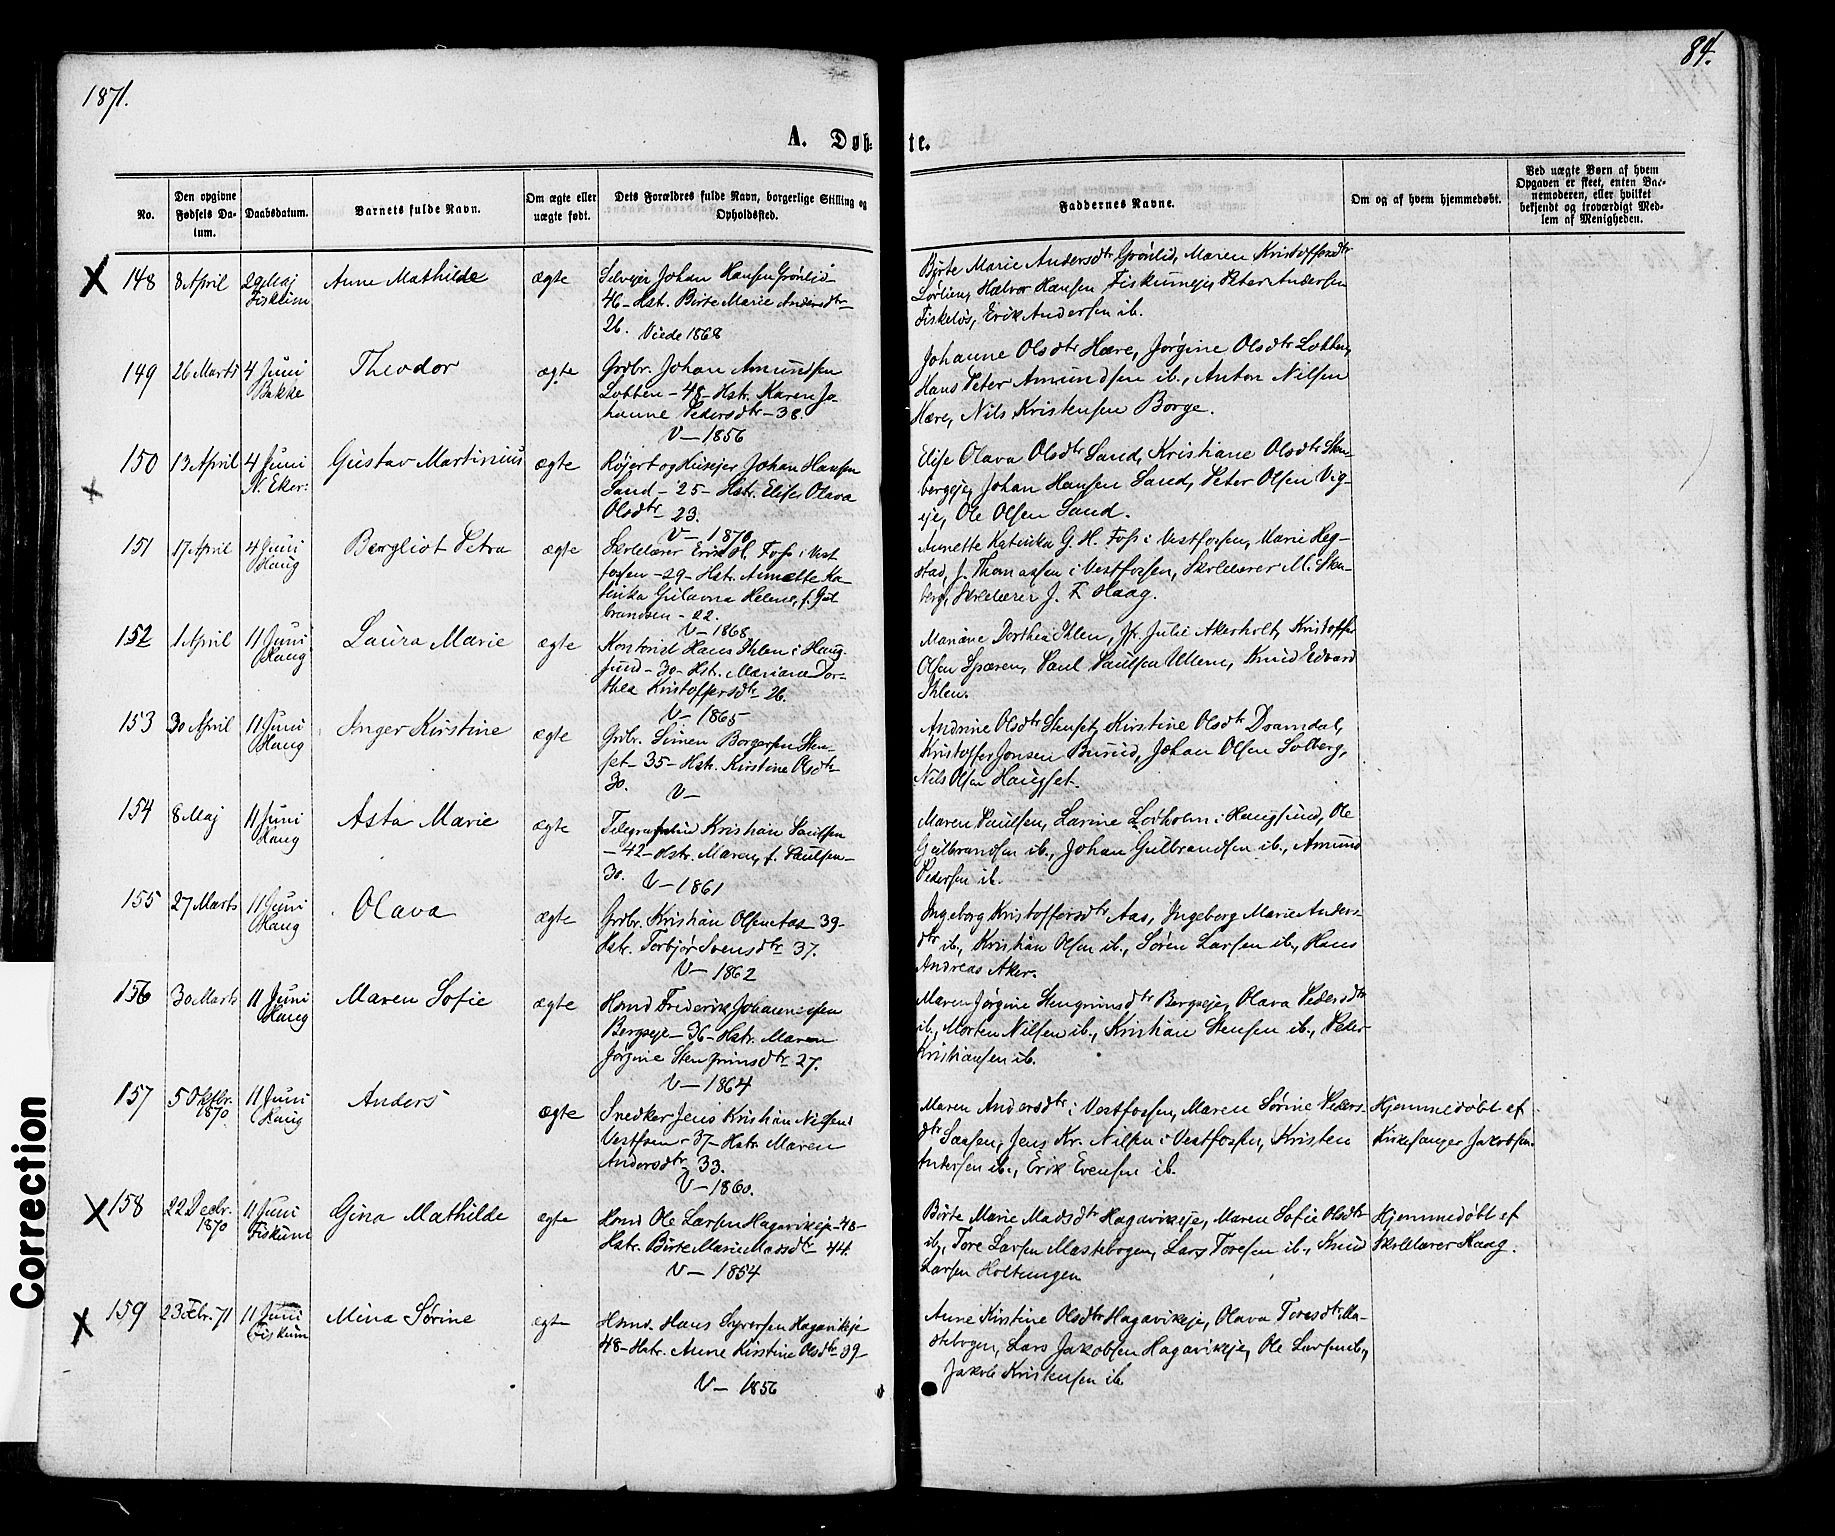 1871.
84.
A. Døb-
te.
No.
Den opgivne Fødsels Da-tum.
Daabsdatum.
Barnets fulde Navn.
Om ægte eller uægte født.
Dets Forældres fulde Navn, borgerlige Stilling og Opholdssted.
Faddernes Navne.
Om og af hvem hjemmedøbt.
Ved uægte Børn af hvem Opgaven er skeet, enten Bar-nemoderen, eller hvilket bekjendt og troværdigt Med-lem af Menigheden.
X 148 8 April 29 Maj Fiskum Anne Mathilde ægte
Selvejer Johan Hansen Grønlid
46 - Hst. Birte Marie Andersdtr
26. Viede 1868
Birte Marie Andersdtr Grønlid, Maren Kristoffersdtr
Halvor Hansen Fiskumeje, Peter Andersen
Fiskeløs, Erik Andersen ib.
149 26 Marts 4 Juni Bakke Theodor ægte
Grdbr. Johan Amundsen
Lobben - 48 - Hst. Karen Jo-
hanne Pedersdtr - 38.
V - 1856
Johanne Olsdtr Hære, Jørgine Olsdtr Lobben,
Hans Peter Amundsen ib., Anton Nilsen
Hære, Nils Kristensen Borge.
150 13 April 4 Juni N. Eker: Gustav Martinius ægte
og Husejer Johan Hansen
Sand - 25 - Hst. Elise Olava
Olsdtr - 23.
V - 1870
Elise Olava Olsdtr Sand, Kristiane Olsdtr Sten-
bergeje, Johan Hansen Sand, Peter Olsen Vig-
eje, Ole Olsen Sand.
151 17 April 4 Juni Haug Bergliot Petra ægte
Skolelærer Erik H. Foss i Vest
fossen - 29 - Hst. Annette Ka-
tinka Gulavna Helene, f. Gul
brandsen - 22.
V - 1868
Annette Katinka G. H. Foss i Vestfossen, Marie Heg-
stad, J. Thomassen i Vestfossen, Skolelærer M. Sten-
berg, Skolelærer J. F. Haag.
152 1 April 11 Juni Haug Laura Marie ægte
Kontorist Hans Ihlen i Haug
sund - 30 - Hst. Mariane Dor-
thea Kristoffersdtr 26.
V - 1865
Mariane Dorthea Ihlen, Jfr. Julie Akerholt, Kristoffer
Olsen Spæren, Paul Paulsen Ulleren, Knud Edvard
Ihlen.
153 30 April 11 Juni Haug Inger Kirstine ægte
Grdbr. Simen Borgersen Sten-
set - 35 - Hst. Kirstine Olsdtr
30. V -
Andrine Olsdtr Stenset, Kirstine Olsdtr Dramdal,
Kristoffer Jonsen Burud, Johan Olsen Solberg,
Nils Olsen Haugset.
154 8 Maj 11 Juni Haug Asta Marie ægte
Kristian Paulsen
- 42 - Hst. Maren, f. Paulsen -
30. V - 1861
Maren Paulsen, Larine Lodholm i Haugsund, Ole
Gulbrandsen ib., Johan Gulbrandsen ib., Amund
Pedersen ib.
155 27 Marts 11 Juni Haug Olava ægte
Grdbr. Kristian Olsen Aas 39 -
Hst. Torbjør Svensdtr 37.
V - 1862
Ingeborg Kristoffersdtr Aas, Ingeborg Marie Anders-
dtr ib., Kristian Olsen ib., Søren Larsen ib., Hans
Andreas Aker.
156 30 Marts 11 Juni Haug Maren Sofie ægte
Hsmd Frederik Johannesen
Bergseje - 36 - Hst. Maren
Jørgine Stengrimsdtr 27.
V - 1864
Maren Jørgine Stengrimsdtr Bergseje, Olava Pedersdtr
ib., Morten Nilsen ib., Kristian Stensen ib., Peter
Kristiansen ib.
157 5 Oktbr. 1870 11 Juni Haug Anders ægte
Snedker Jens Kristian Nilsen i
Vestfossen - 37 - Hst Maren
Andersdtr 33.
V - 1860.
Maren Andersdtr i Vestfossen, Maren Sørine Peders-
dtr Jens Kr. Nilsen i Vestfossen, Kristen
Andersen ib., Erik Evensen ib.
Hjemmedøbt af
Kirkesanger Jakobsen.
X 158 22 Decbr. 1870 11 Juni Fiskum Gina Mathilde ægte
Hsmd Ole Larsen Hagavikeje - 48 -
Hst. Birte Marie Madsdtr 44.
V - 1854
Birte Marie Madsdtr Hagavikeje, Maren Sofie Olsdtr
ib., Tore Larsen Mastebogen, Lars Toresen ib., Knud
Larsen Holtungen
Hjemmedøbt af
Skolelærer Haag.
X 159 23 Febr. 71 11 Juni Fiskum Mina Sørine ægte
Hsmd. Hans Syversen Hagavikeje
48 - Hst. Anne Kirstine Olsdtr 39 -
V - 1856
Anne Kirstine Olsdtr Hagavikeje, Olava Toresdtr Ma-
stebogen, Lars Jakobsen Hagavikeje, Ole Larsen ib.,
Jakob Kristensen ib.
Correction